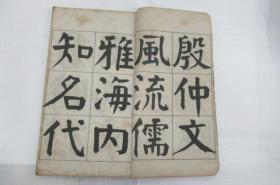 殷仲文
風流儒
雅海内
知名代